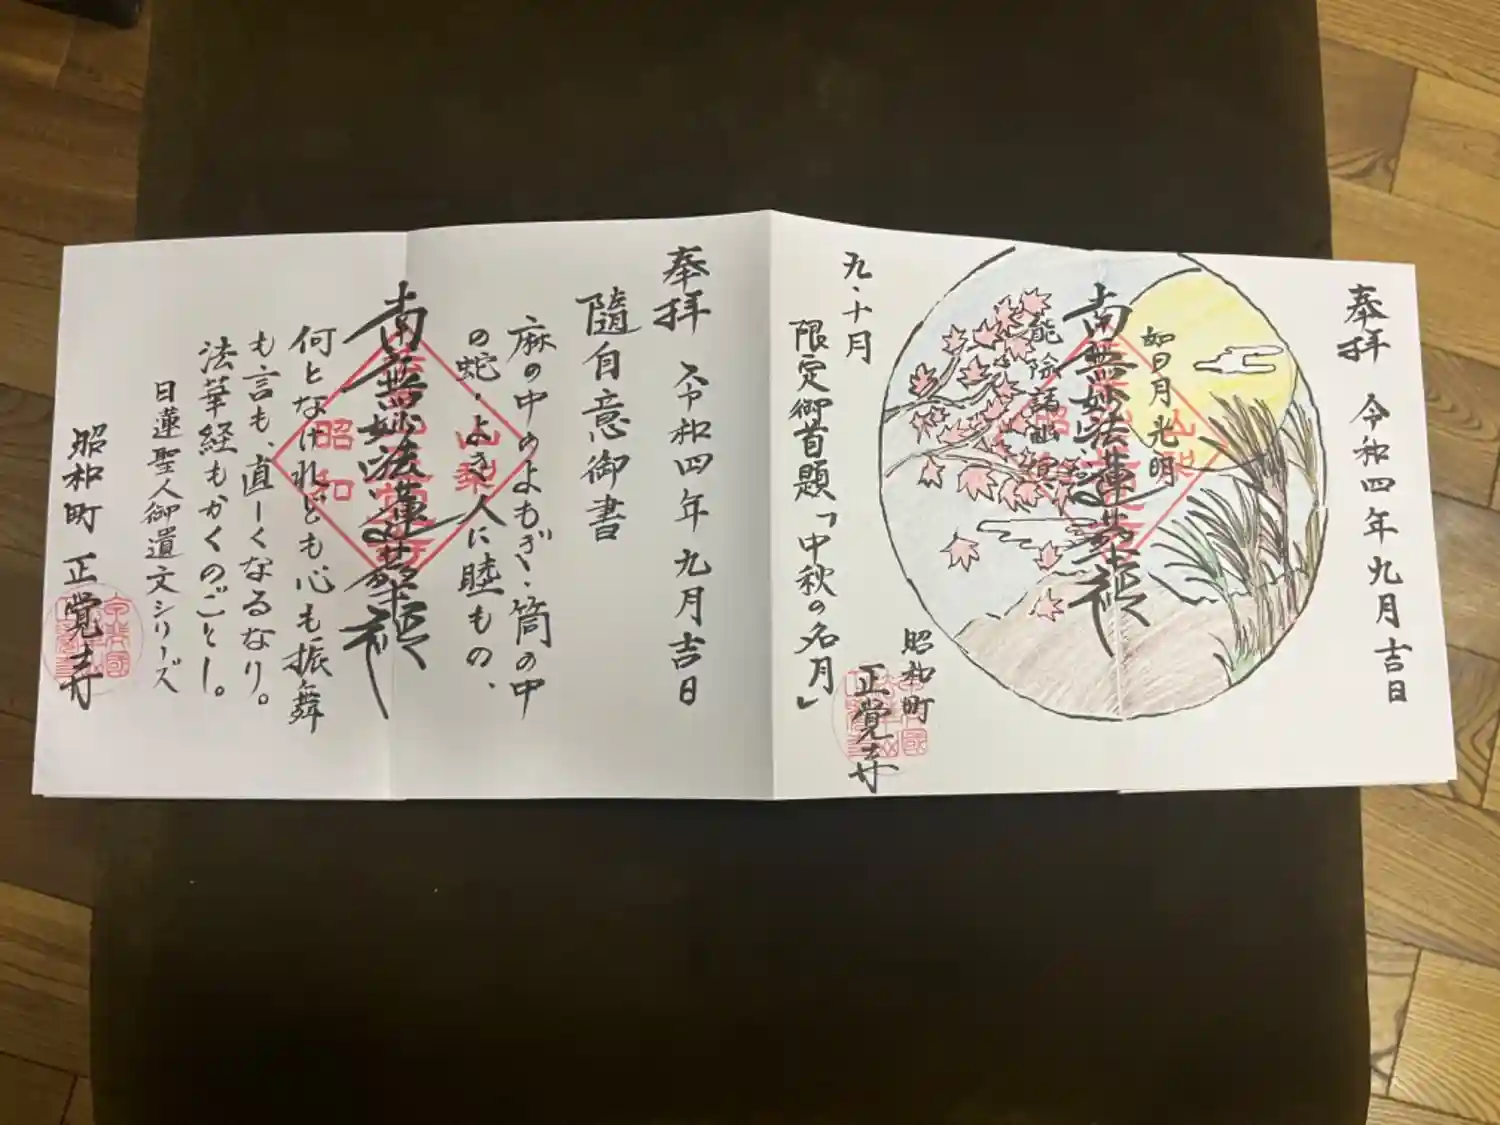 奉拝 令和四年九月吉日
如日月光明
南無妙法蓮華経
能除諸幽冥
昭和町
正覚寺
九・十月
限定御首題「中秋の名月」
奉拝 令和四年九月吉日
隨自意御書
麻の中のよもぎ・筒の中
の蛇・よき人に睦もの、
南無妙法蓮華経
何となけれども心も振舞
も言も、直しくなるなり。
法華経もかくのごとし。
日蓮聖人御遺文シリーズ
昭和町 正覚寺
山梨
昭和